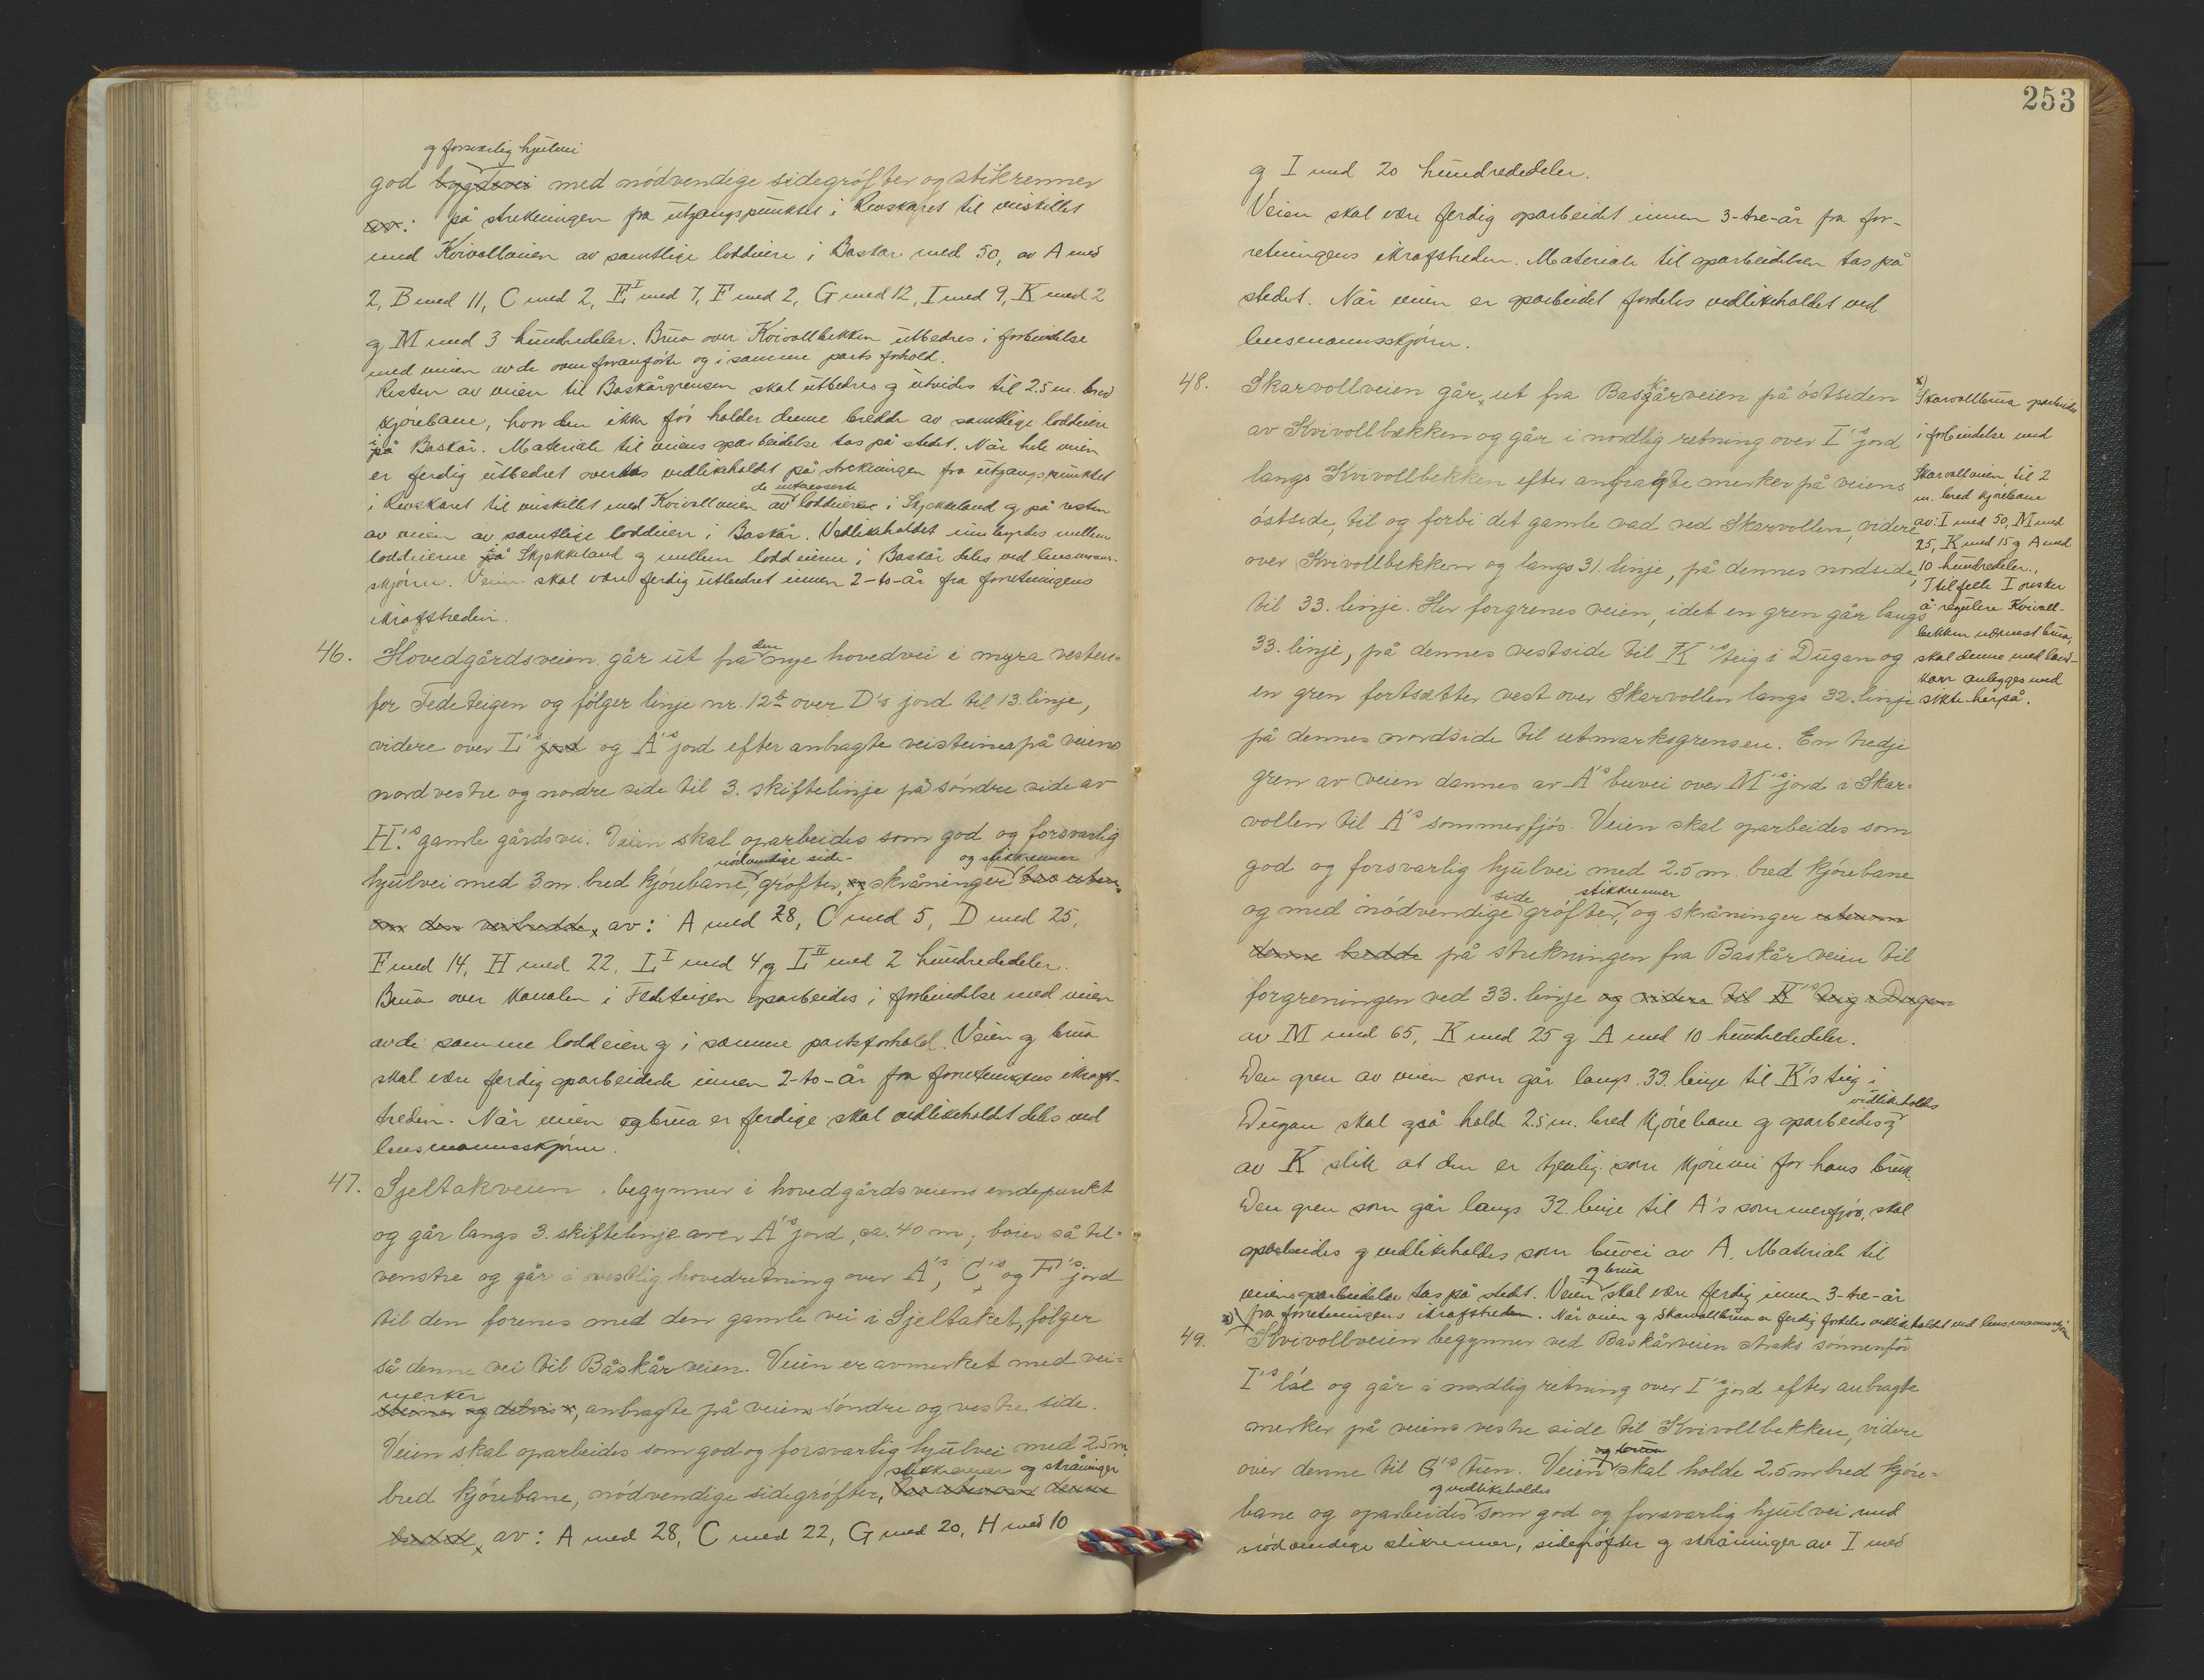 og forsvarlig hjulvei
god bygdevei med nödvendige sidegröfter og stikrenner
av: på strekningen fra utgangspunktet i Revskaret til veiskillet
med Kvivollveien av samtlige loddeiere i Baskår med 50, av A med
2, B med 11, C med 2, E I med 7, F med 2, G med 12, I med 9, K med 2
og M med 3 hundredeler. Brua over Kvivollbekken utbedres i forbindelse
med veien av de ovenforanførte og i samme parts forhold.
Resten av veien til Baskårgrensen skal utbedres og utvides til 2.5 m. bred
kjörebane, hvor den ikke för holder denne bredde av samtlige loddeiere
i på Baskår. Materiale til veiens oparbeidelse tas på stedet. Når hele veien
er ferdig utbedret overtas vedlikeholdet på strekningen fra utgangspunktet
de interesserte
i Revskaret til veiskillet med Kvivollveien av loddeiere i Skjekkeland og på resten
av veien av samtlige loddeiere i Baskår. Vedlikeholdet innbyrdes mellem
loddeierne på Skjekkeland og mellem loddeierne i Baskår deles ved lensmanns-
skjönn. Veien skal være ferdig utbedret innen 2-to-år fra forretningens
ikrafttreden.
46. Hovedgårdsveien går ut fra den nye hovedvei i myra vesten-
for Fedeteigen og fölger linje nr. 12b over D's jord til 13. linje,
videre over L's jord og A's jord efter anbragte veisteiner på veiens
nordvestre og nordre side til 3. skiftelinje på söndre side av
H's gamle gårdsvei. Veien skal oparbeides som god og forsvarlig
nödvendige side- og stikkrenner
hjulvei med 3 m. bred kjörebane, gröfter, og skråninger
av: A med 28, C med 5, D med 25,
F med 14, H med 22, L I med 4 og L II med 2 hundrededeler.
Brua over kanalen i Fedeteigen oparbeides i forbindelse med veien
av de samme loddeiere og i samme partsforhold. Veien og brua
skal være ferdig oparbeidede innen 2-to-år fra forretningens ikraft-
treden. Når veien og brua er ferdige skal vedlikeholdet deles ved
lensmannsskjönn.
47. Sjeltakveien. begynner i hovedgårdsveiens endepunkt
og går langs 3. skiftelinje over A's jord, ca. 40 m, böier så til-
venstre og går i vestlig hovedretning over A's, C's og F's jord
til den forenes med den gamle vei i Sjeltaket, fölger
så denne vei til Båskårveien. Veien er avmerket med vei-
merker
steiner og delvis x, anbragte på veiens söndre og vestre side.
Veien skal oparbeides som god og forsvarlig hjulvei med 2.5 m
stikkrenner og skråninger
bred kjörebane, nödvendige sidegröfter, denne
bredde, av: A med 28, C med 22, G med 20, H med 10
253
og I med 20 hundrededeler.
Veien skal være ferdig oparbeidet innen 3-tre-år fra for-
retningens ikrafttreden. Materiale til oparbeidelsen tas på
stedet. Når veien er oparbeidet fordeles vedlikeholdet ved
lensmannsskjönn.
48. Skarvollveien går x ut fra Baskårveien på östsiden
av Kvivollbækken og går i nordlig retning over I's jord
langs Kvivollbekken efter anbragte merker på veiens
östside, til og forbi det gamle vad ved Skarvollen, videre
over Kvivollbekken og langs 31. linje, på dennes nordside,
til 33. linje. Her forgrenes veien, idet en gren går langs
33. linje, på dennes vestside til K's teig i Dugan og
en gren fortsætter vest over Skarvollen langs 32. linje
på dennes nordside til utmarksgrensen. En tredje
gren av veien dannes av A's buvei over M's jord i Skar-
vollen til A's sommerfjös. Veien skal oparbeides som
god og forsvarlig hjulvei med 2.5 m. bred kjörebane
side stikkrenner
og med nödvendige gröfter, og skråninger utenom
denne bredde på strekningen fra Baskårveien til
forgreningen ved 33. linje og videre til K's teig i Dugan
av M med 65, K med 25 og A med 10 hundrededeler.
Den gren av veien som går langs 33. linje til K's teig i
vedlikeholdes
Dugan skal også holde 2.5 m. bred kjörebane og oparbeides og
av K slik at den er tjenlig som kjörevei for hans bruk.
Den gren som går langs 32. linje til A's sommerfjös, skal
oparbeides og vedlikeholdes som buvei av A. Materiale til
og brua
veiens oparbeidelse tas på stedet. Veien skal være ferdig innen 3-tre-år
fra forretningens ikrafttreden. Når veien og Skarvollbrua er ferdig fordeles vedlikeholdet ved lensmannsskjönn
x) Skarvollbrua oparbeides
i forbindelse med
Skarvollveien til 2
m. bred kjörebane
av: I med 50, M med
25, K med 15 og A med
10 hundredeler.
I tilfelle I önsker
å regulere Kvivoll-
bekken nærmest brua,
skal denne med land-
kar anlegges med
sikte herpå.
49. Kvivollveien begynner ved Baskårveien straks sönnenfor
I's löe og går i nordlig retning over I's jord efter anbragte
merker på veiens vestre side til Kvivollbekken, videre
og brua
over denne til G's tun. Veien skal holde 2.5 m bred kjöre-
og vedlikeholdes
bane og oparbeides som god og forsvarlig hjulvei med
nödvendige stikrenner, sidegröfter og skråninger av I med